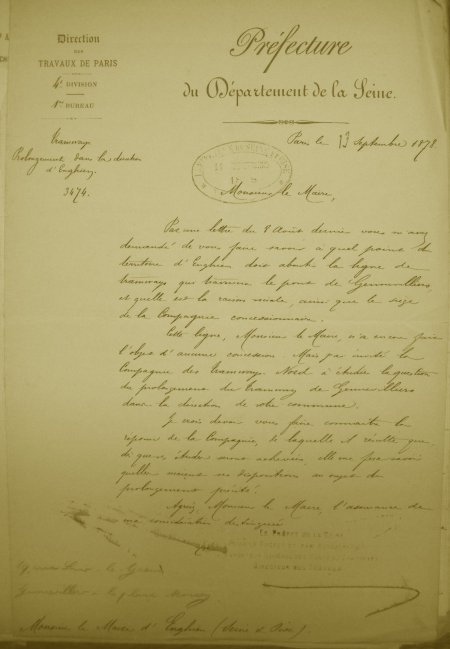 Direction
DES
TRAVAUX DE PARIS
4e DIVISION
1er BUREAU
Tramways
Prolongement dans la direction
d'Enghien
3474.
Préfecture
du Département de la Seine.
Paris le 13 Septembre 1878
Monsieur le Maire,
Par une lettre du 8 Août dernier vous m'avez
demandé de vous faire savoir à quel point du
territoire d'Enghien doit aboutir la ligne de
tramways qui traverse le pont de Gennevilliers,
et quelle est la raison sociale, ainsi que le siège
de la Compagnie concessionnaire.
Cette ligne, Monsieur le Maire, n'a encore fait
l'objet d'aucune concession. Mais j'ai invité la
Compagnie des tramways Nord à étudier la question
du prolongement du tramway de Gennevilliers
dans la direction de votre commune.
Je crois devoir vous faire connaître la
réponse de la Compagnie, de laquelle il résulte que
dès que ses études seront achevées, elle me fera savoir
quelles seraient ses dispositions au sujet du
prolongement précité.
Agréez Monsieur le Maire, l'assurance de
ma considération distinguée
LE PRÉFET DE LA SEINE
DIRECTEUR DES TRAVAUX
Monsieur le Maire d'Enghien (Seine & Oise).